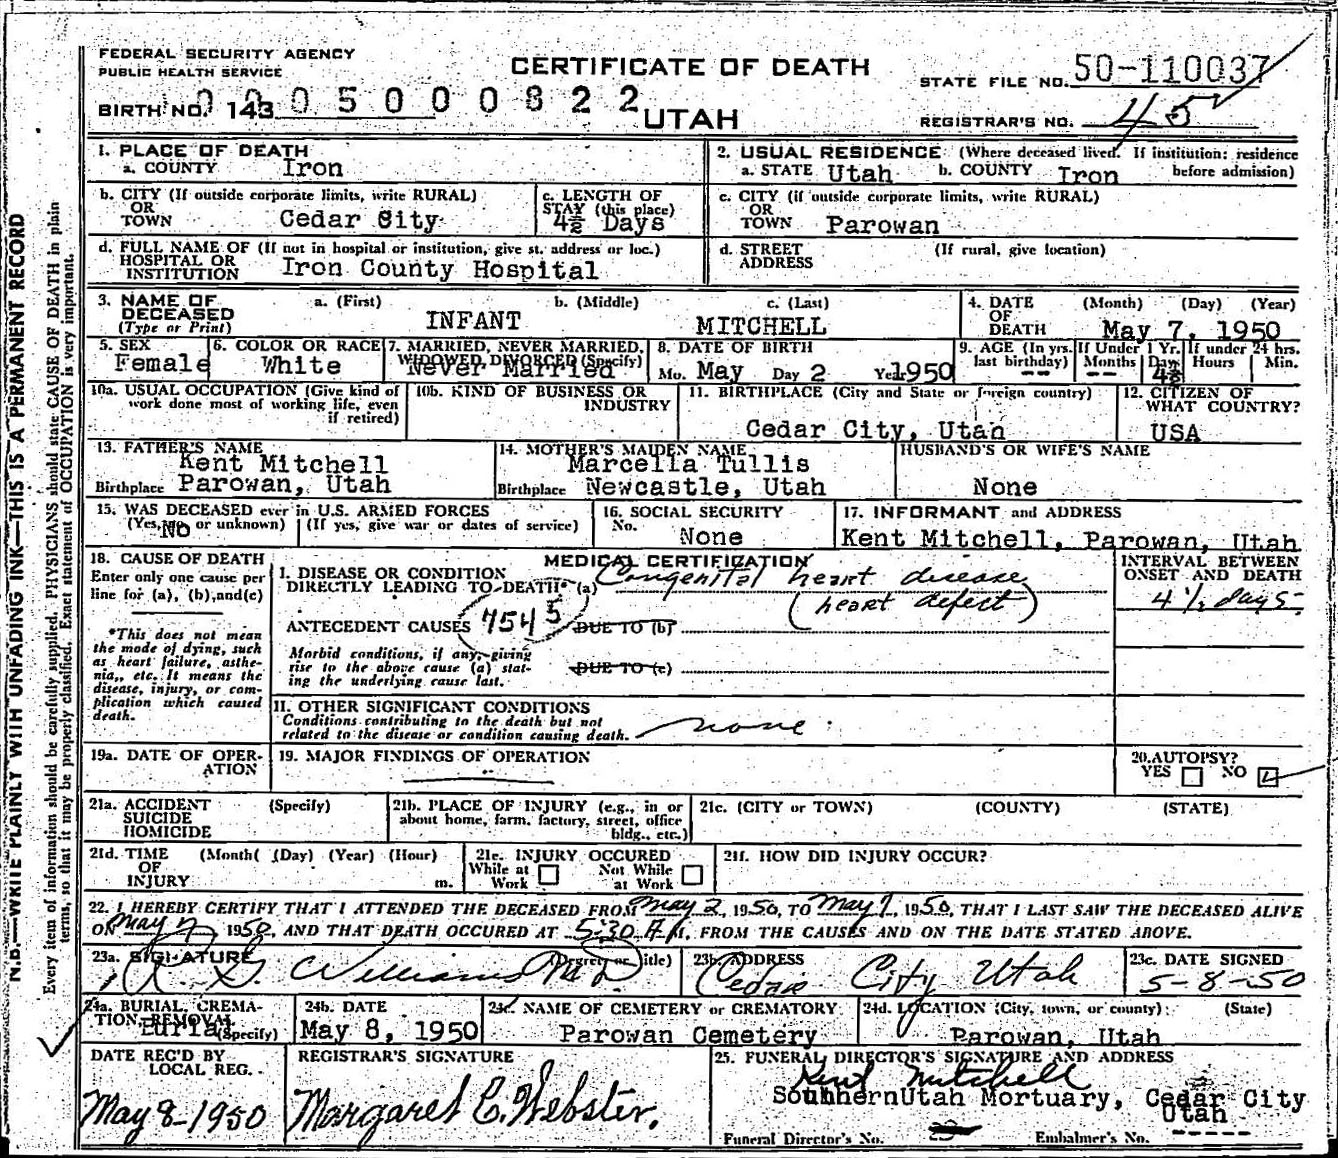 FEDERAL SECURITY AGENCY
PUBLIC HEALTH SERVICE
CERTIFICATE OF DEATH
STATE FILE NO. 50-110037
BIRTH NO. 143 0005000822
UTAH
REGISTRAR'S NO. 45
1. PLACE OF DEATH
a. COUNTY Iron
2. USUAL RESIDENCE (Where deceased lived. If institution: residence before admission)
a. STATE Utah b. COUNTY Iron
b. CITY (If outside corporate limits, write RURAL)
OR
TOWN Cedar City
c. LENGTH OF
STAY (this place)
4½ Days
c. CITY (if outside corporate limits, write RURAL)
OR
TOWN Parowan
d. FULL NAME OF (If not in hospital or institution, give st. address or loc.)
HOSPITAL OR
INSTITUTION Iron County Hospital
d. STREET (If rural, give location)
ADDRESS
3. NAME OF DECEASED
(Type or Print)
a. (First) b. (Middle) c. (Last)
INFANT MITCHELL
4. DATE OF DEATH (Month) (Day) (Year)
May 7, 1950
5. SEX
Female
6. COLOR OR RACE
White
7. MARRIED, NEVER MARRIED,
WIDOWED, DIVORCED (Specify)
Never Married
8. DATE OF BIRTH
Mo. May Day 2 Yr. 1950
9. AGE (In yrs. last birthday) --
If Under 1 Yr. Months -- Days 4½
If under 24 hrs. Hours Min.
10a. USUAL OCCUPATION (Give kind of
work done most of working life, even
if retired)
10b. KIND OF BUSINESS OR
INDUSTRY
11. BIRTHPLACE (City and State or foreign country)
Cedar City, Utah
12. CITIZEN OF
WHAT COUNTRY?
USA
13. FATHER'S NAME
Kent Mitchell
Birthplace Parowan, Utah
14. MOTHER'S MAIDEN NAME
Marcella Tullis
Birthplace Newcastle, Utah
HUSBAND'S OR WIFE'S NAME
None
15. WAS DECEASED ever in U.S. ARMED FORCES
(Yes, no or unknown) (If yes, give war or dates of service)
No
16. SOCIAL SECURITY
No.
None
17. INFORMANT and ADDRESS
Kent Mitchell, Parowan, Utah
18. CAUSE OF DEATH
Enter only one cause per
line for (a), (b), and (c)
*This does not mean
the mode of dying, such
as heart failure, asthe-
nia, etc. It means the
disease, injury, or com-
plication which caused
death.
MEDICAL CERTIFICATION
I. DISEASE OR CONDITION
DIRECTLY LEADING TO DEATH* (a) Congenital heart disease
(heart defect)
ANTECEDENT CAUSES 7545 DUE TO (b)
Morbid conditions, if any, giving
rise to the above cause (a) stat-
ing the underlying cause last.
DUE TO (c)
INTERVAL BETWEEN
ONSET AND DEATH
4 ½ days
II. OTHER SIGNIFICANT CONDITIONS
Conditions contributing to the death but not
related to the disease or condition causing death. none
19a. DATE OF OPER-
ATION
19. MAJOR FINDINGS OF OPERATION
20. AUTOPSY?
YES NO
21a. ACCIDENT (Specify)
SUICIDE
HOMICIDE
21b. PLACE OF INJURY (e.g., in or
about home, farm, factory, street, office
bldg., etc.)
21c. (CITY or TOWN) (COUNTY) (STATE)
21d. TIME (Month( (Day) (Year) (Hour)
OF
INJURY m.
21e. INJURY OCCURED
While at Work Not While at Work
21f. HOW DID INJURY OCCUR?
22. I HEREBY CERTIFY THAT I ATTENDED THE DECEASED FROM May 2, 1950, TO May 7, 1950, THAT I LAST SAW THE DECEASED ALIVE
ON May 7 1950, AND THAT DEATH OCCURED AT 5:30 A M., FROM THE CAUSES AND ON THE DATE STATED ABOVE.
23a. SIGNATURE (Degree or Title)
R. G. Williams M.D.
23b. ADDRESS
Cedar City Utah
23c. DATE SIGNED
5-8-50
24a. BURIAL, CREMA-
TION, REMOVAL (Specify)
Burial
24b. DATE
May 8, 1950
24c. NAME OF CEMETERY or CREMATORY
Parowan Cemetery
24d. LOCATION (City, town, or county) (State)
Parowan, Utah
DATE REC'D BY
LOCAL REG.
May 8-1950
REGISTRAR'S SIGNATURE
Margaret C. Webster.
25. FUNERAL DIRECTOR'S SIGNATURE AND ADDRESS
Kent Mitchell
Southern Utah Mortuary, Cedar City
Utah
Funeral Director's No. Embalmer's No. -----
N.B.—WRITE PLAINLY WITH UNFADING INK—THIS IS A PERMANENT RECORD
Every item of information should be carefully supplied. PHYSICIANS should state CAUSE OF DEATH in plain
terms, so that it may be properly classified. Exact statement of OCCUPATION is very important.